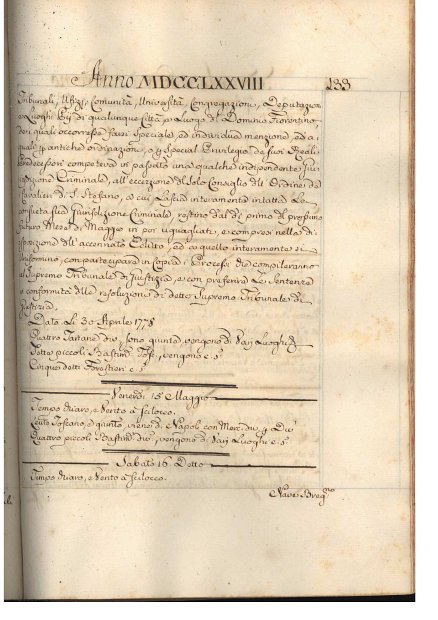 Anno MDCCLXXVIII 133
Tribunali, Ufizi, Comunità, Università, Congregazioni, Deputazioni
e Luoghi Pij di qualunque Città, o Luogo del Dominio Fiorentino,
dei quali occorresse farsi speciale, ed individua menzione, ed ai
quali per antiche ordinazioni, o per special Privilegio de suoi Reali
Predecessori competeva in passato una qualche indipendente Giuri
sdizione Criminale, all'eccezione del Solo Consiglio dell'Ordine de
Cavalieri di S. Stefano, a cui lascia interamente intatta la
consueta sua Giurisdizione Criminale, restino dal dì primo del prossimo
futuro Mese di Maggio in poi uguagliati, e compresi nella di
sposizione dell'accennato Editto, ed a quello interamente si
uniformino, con partecipare in Copia i Processi che compileranno
al Supremo Tribunale di Giustizia, e con preferire le Sentenze
a conformità delle resoluzioni di detto Supremo Tribunale di
Giustizia.
Dato Li 30 Aprile 1778
Quattro Tartane dio, sono quinta vengono di Varj Luoghi
Sette piccoli Bastim. Tosc., vengono e s.
Cinque detti Forestieri e s.
Venerdì 15 Maggio
Tempo chiaro, e Vento à Scilocco.
Leuto Toscano, d quinto, viene di Napoli con Merc. div.
Quattro piccoli Bastim. div., vengono di Varj Luoghi e s.
Sabato 16 Detto
Tempo chiaro, e Vento à Scilocco.
Nave Breg.no